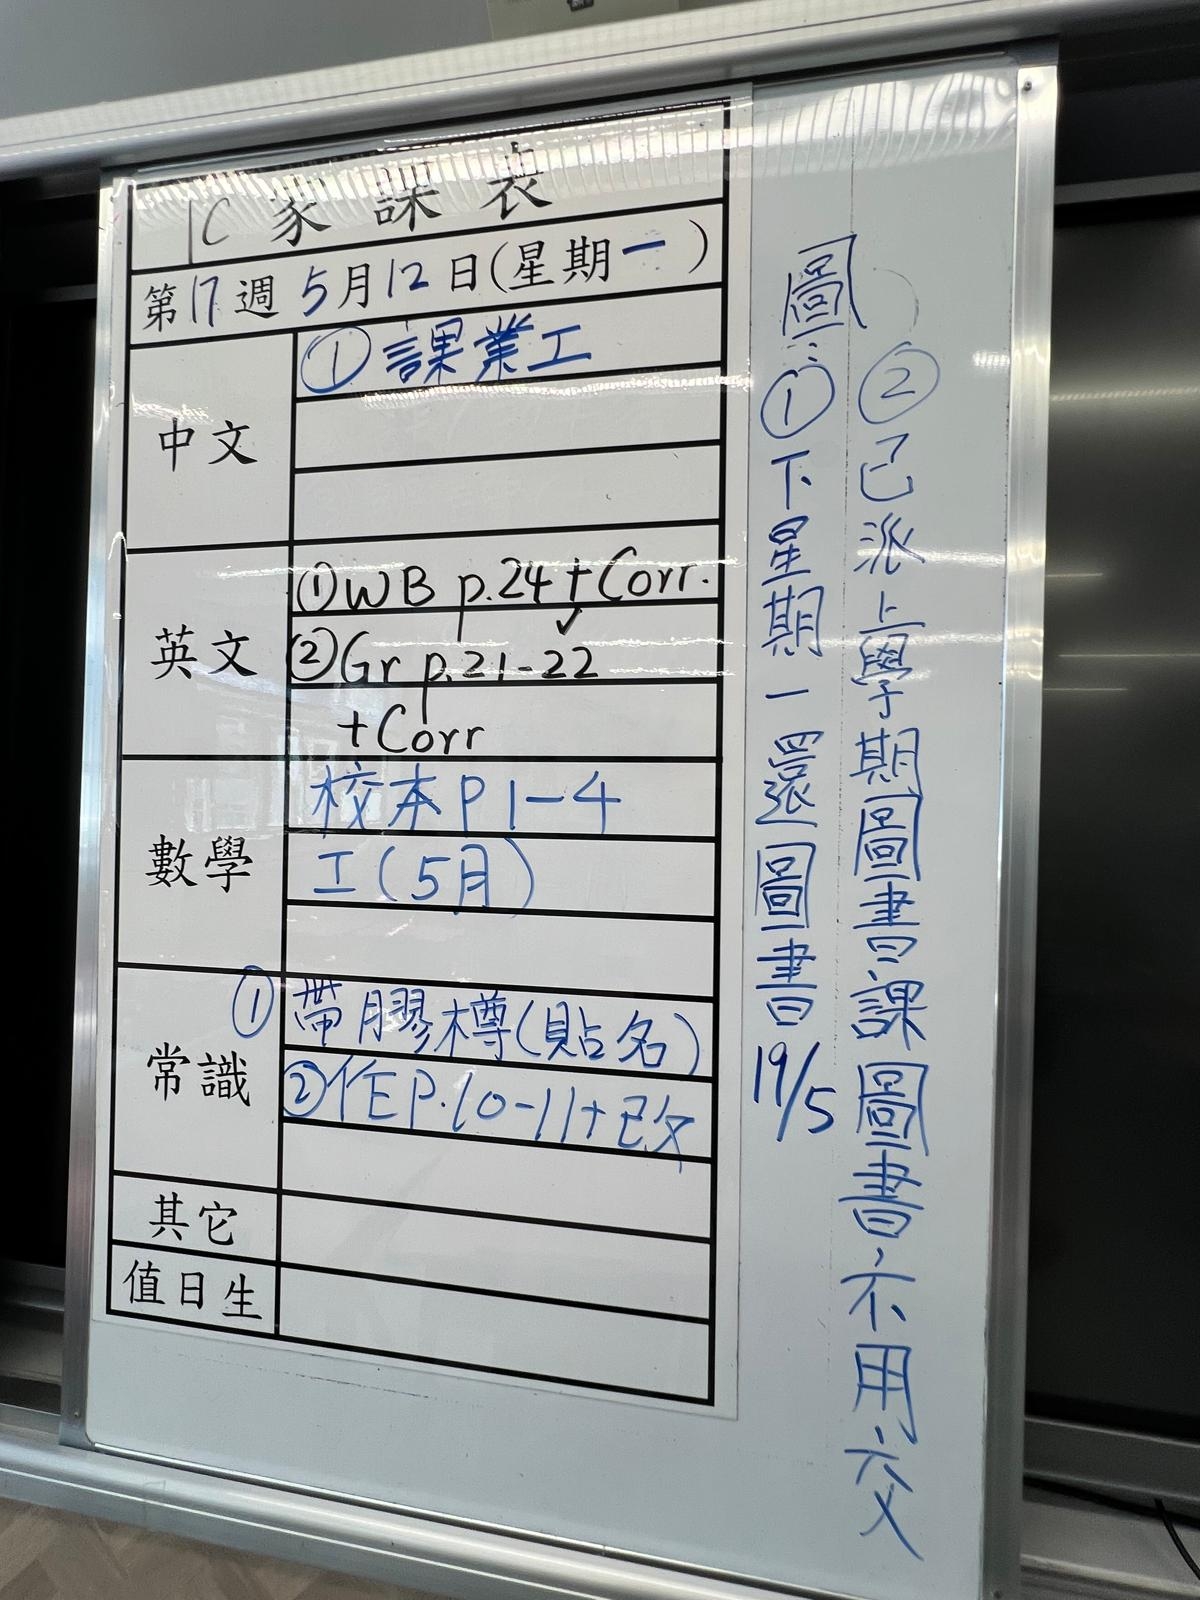 1C 家課表
第17週 5月12日(星期一)
中文
① 課業工
英文
①WB p.24 + Corr.
②Gr p.21-22
+Corr
數學
校本P1-4
工(5月)
常識
① 帶膠樽(貼名)
②作EP.10-11+改
其它
值日生
圖:①下星期一還圖書 19/5
②已派上學期圖書課圖書,不用交